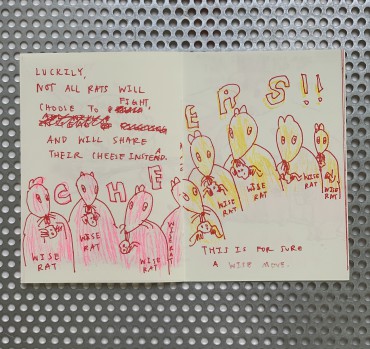 LUCKILY,
NOT ALL RATS WILL
CHOOSE TO FIGHT,
AND WILL SHARE
THEIR CHEESE INSTEAD.
CHEERS!!
WISE RAT
WISE RAT
WISE RAT
WISE RAT
WISE RAT
WISE RAT
WISE RAT
WISE RAT
THIS IS FOR SURE
A WISE MOVE.